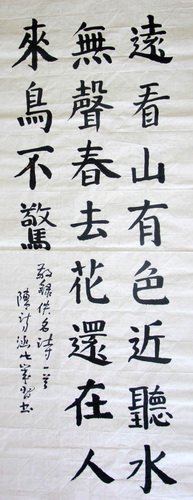 遠看山有色近聽水
無聲春去花還在人
來鳥不驚
敬錄佚名詩一首
陳詩涵七歲習書